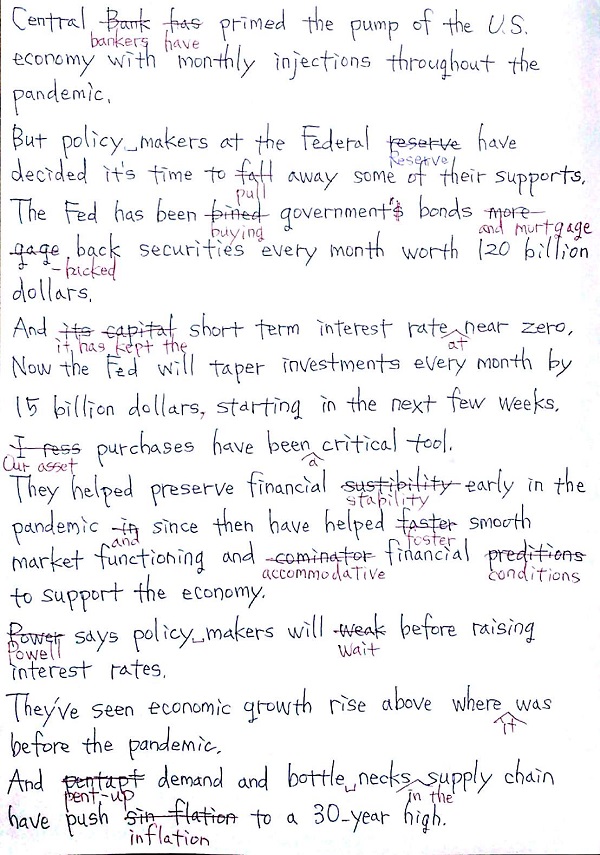 Central Bank has primed the pump of the U.S.
bankers have
economy with monthly injections throughout the
pandemic.
But policy makers at the Federal reserve have
Reserve
decided it's time to fall away some of their supports.
pull
The Fed has been bined government's bonds more
buying and murtgage
gage back securities every month worth 120 billion
-backed
dollars.
And its capital short term interest rate near zero.
it has kept the at
Now the Fed will taper investments every month by
15 billion dollars, starting in the next few weeks.
I ress purchases have been critical tool.
Our asset a
They helped preserve financial sustibility early in the
stability
pandemic in since then have helped faster smooth
and foster
market functioning and cominator financial preditions
accommodative conditions
to support the economy.
Power says policy makers will weak before raising
Powell wait
interest rates.
They've seen economic growth rise above where was
it
before the pandemic.
And pentapt demand and bottle necks supply chain
pent-up in the
have push sin flation to a 30-year high.
inflation